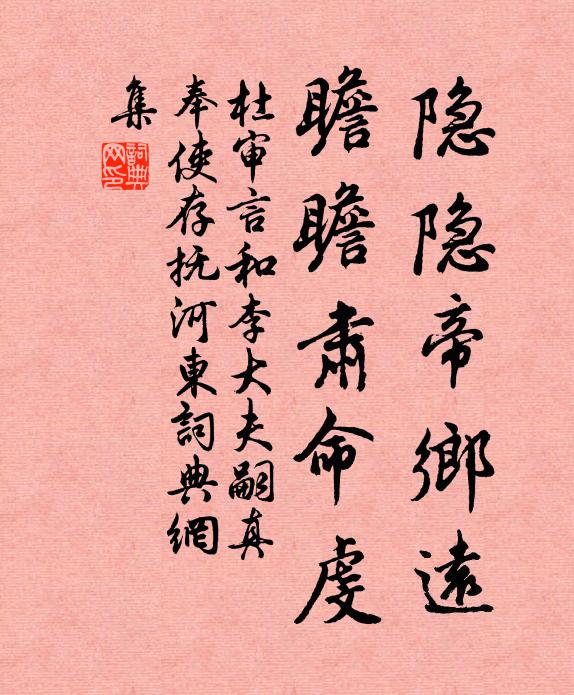 隐隐帝鄉遠
瞻瞻肃命虔
杜审言和李大夫嗣真
奉使存抚河東詞典網
集
詞典
网印